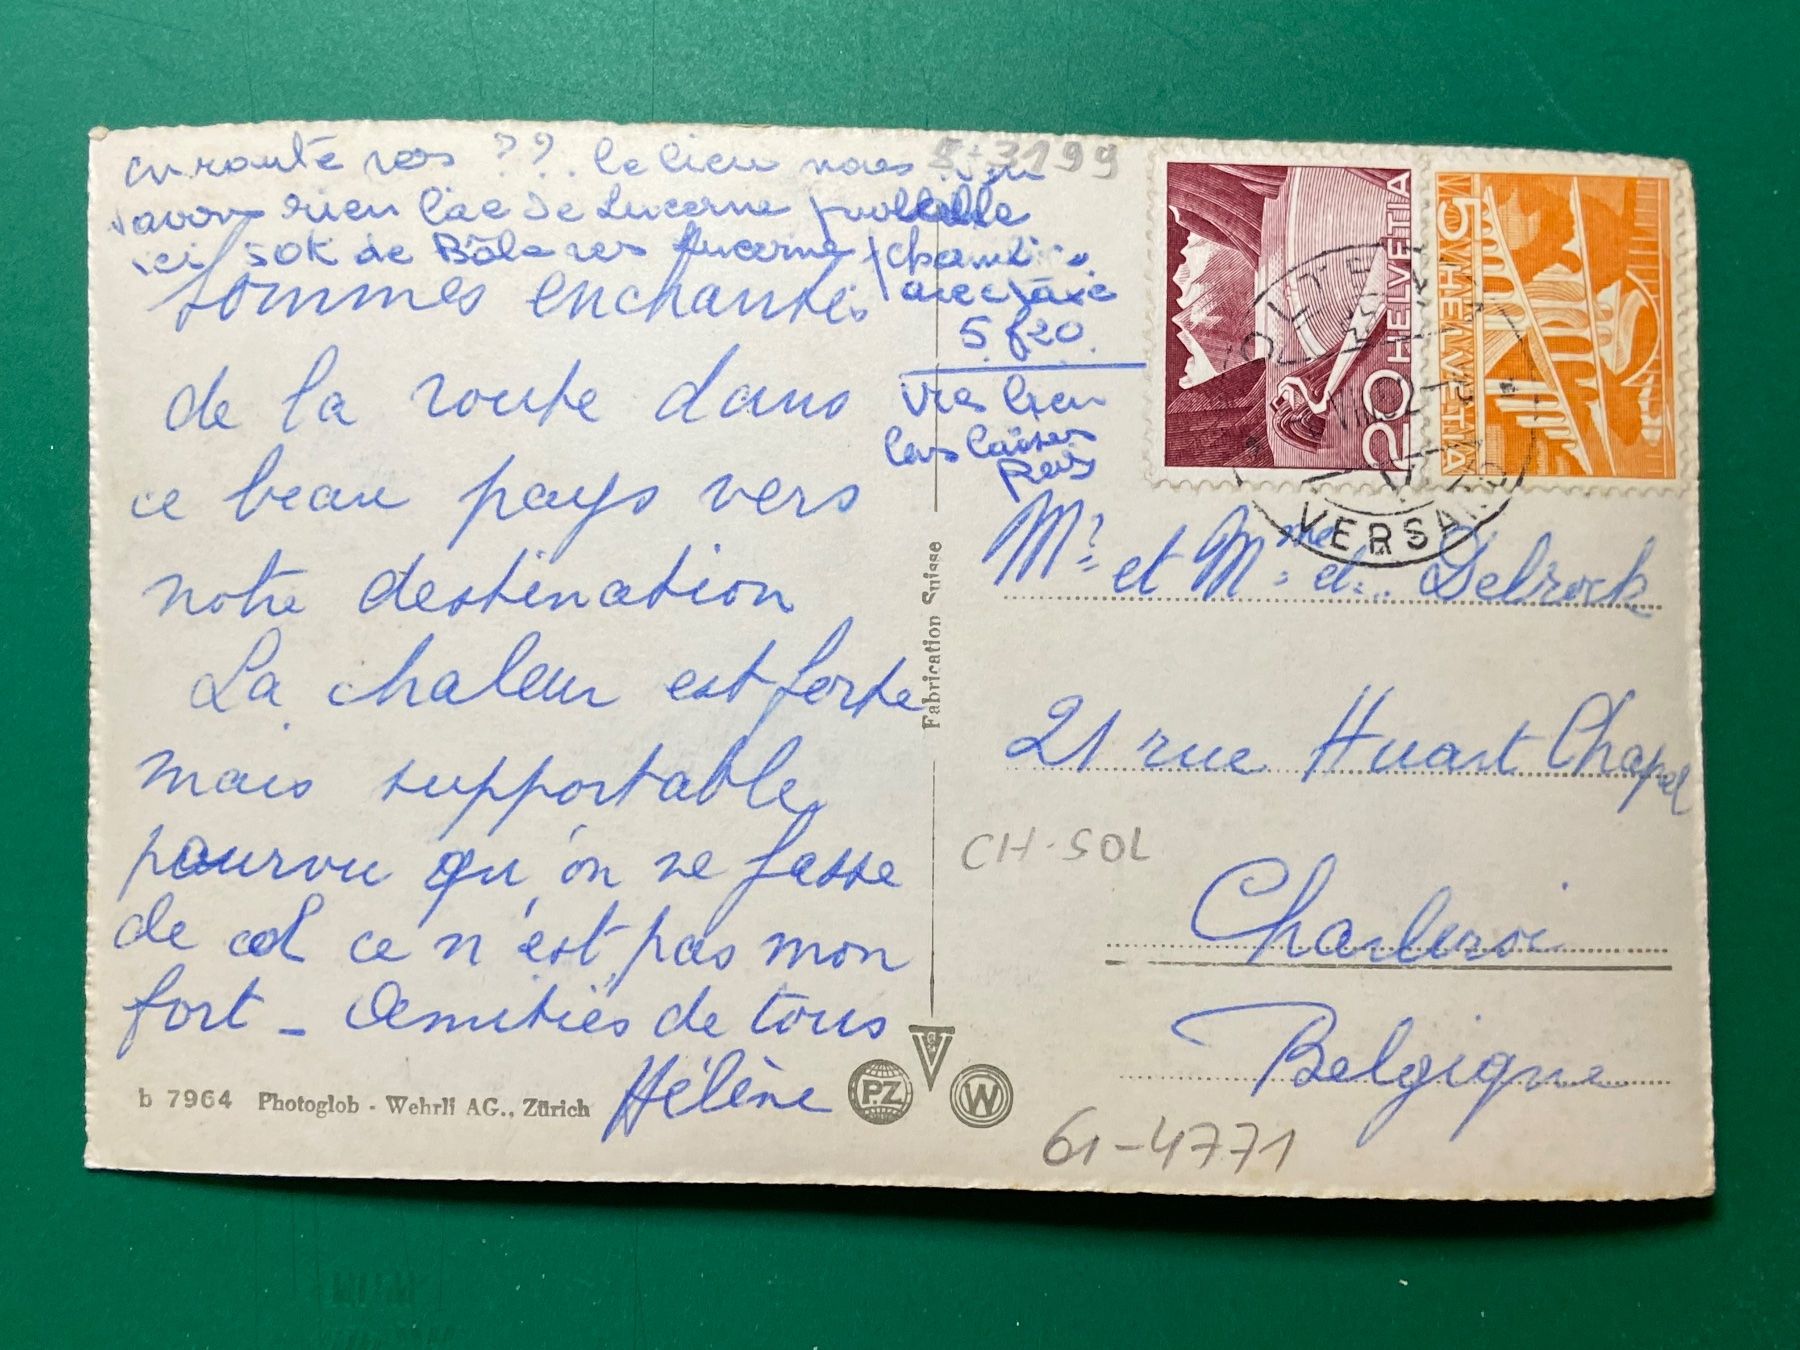 en route vers ?? le lieu nous
savons rien lac de Lucerne probable
ici 50k de Bâle vers Lucerne
avec taxe
5 f 20.
très bien
Sommes enchantés
de la route dans
ce beau pays vers
notre destination
La chaleur est forte
mais supportable
pourvu qu'on ne fasse
de col ce n'est pas mon
fort - Amitiés de tous
Hélène
b 7964 Photoglob - Wehrli AG., Zürich
PZ
W
Fabrication Suisse
5+3199
20 HELVETIA
5 HELVETIA
OLTEN
VERSAND
Mr et Mme Delrock
21 rue Huart Chapel
CH-SOL
Charleroi
Belgique
61-4771